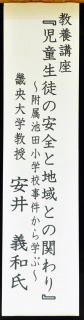 教養講座
『児童生徒の安全と地域との関わり』
～附属池田小学校事件から学ぶ～
畿央大学教授　安井　義和氏